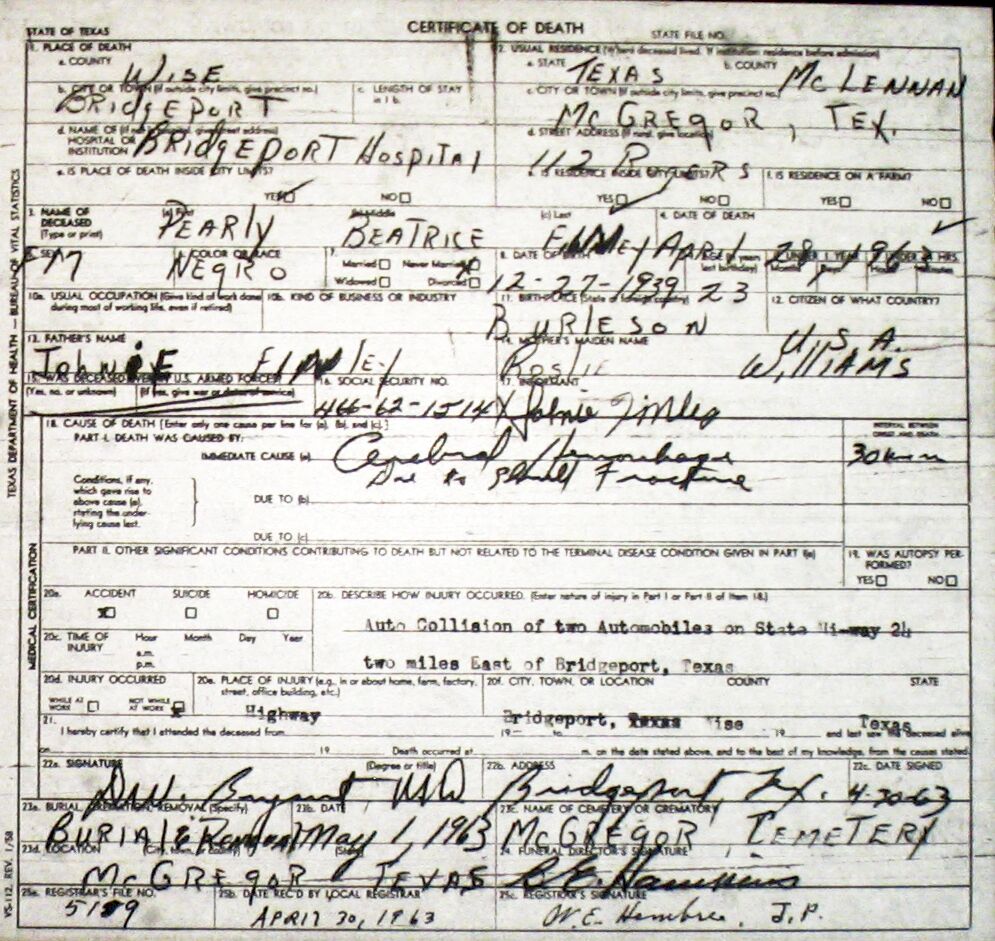 STATE OF TEXAS
CERTIFICATE OF DEATH
STATE FILE NO.
1. PLACE OF DEATH
a. COUNTY
WISE
2. USUAL RESIDENCE (Where deceased lived. If institution: residence before admission)
a. STATE
TEXAS
b. COUNTY
McLENNAN
b. CITY OR TOWN (If outside city limits, give precinct no.)
BRIDGEPORT
c. LENGTH OF STAY
in 1 b.
c. CITY OR TOWN (If outside city limits, give precinct no.)
McGREGOR, TEX.
d. NAME OF (If not in hospital, give street address)
HOSPITAL OR
INSTITUTION
BRIDGEPORT HOSPITAL
d. STREET ADDRESS (If rural, give location)
112
e. IS PLACE OF DEATH INSIDE CITY LIMITS?
YES NO
e. IS RESIDENCE INSIDE CITY LIMITS?
YES NO
f. IS RESIDENCE ON A FARM?
YES NO
3. NAME OF
DECEASED
(Type or print)
(a) First
PEARLY
(b) Middle
BEATRICE
(c) Last
FINLEY
4. DATE OF DEATH
April 28, 1963
5. SEX
6. COLOR OR RACE
NEGRO
7.
Married Never Married
Widowed Divorced
8. DATE OF BIRTH
12-27-1939
9. AGE (In years
last birthday)
23
IF UNDER 1 YEAR
Months Days
IF UNDER 24 HRS.
Hours Minutes
10a. USUAL OCCUPATION (Give kind of work done
during most of working life, even if retired)
10b. KIND OF BUSINESS OR INDUSTRY
11. BIRTHPLACE (State or foreign country)
BURLESON
12. CITIZEN OF WHAT COUNTRY?
U.S.A.
13. FATHER'S NAME
JohnIE FINLEY
14. MOTHER'S MAIDEN NAME
ROSLIE WILLIAMS
15. WAS DECEASED EVER IN U.S. ARMED FORCES?
(Yes, no, or unknown) (If yes, give war or dates of service)
16. SOCIAL SECURITY NO.
466-62-1514
17. INFORMANT
X Johnie Finley
18. CAUSE OF DEATH [Enter only one cause per line for (a), (b), and (c).]
PART I. DEATH WAS CAUSED BY:
IMMEDIATE CAUSE (a)
Cerebral Hemorrhage
Due to Skull Fracture
INTERVAL BETWEEN
ONSET AND DEATH
30
Conditions, if any,
which gave rise to
above cause (a),
stating the under-
lying cause last.
DUE TO (b)
DUE TO (c)
PART II. OTHER SIGNIFICANT CONDITIONS CONTRIBUTING TO DEATH BUT NOT RELATED TO THE TERMINAL DISEASE CONDITION GIVEN IN PART I(a)
19. WAS AUTOPSY PER-
FORMED?
YES NO
20a. ACCIDENT SUICIDE HOMICIDE
x
20b. DESCRIBE HOW INJURY OCCURRED. (Enter nature of injury in Part I or Part II of item 18.)
Auto Collision of two Automobiles on State Hi-way 24
two miles East of Bridgeport, Texas
20c. TIME OF
INJURY
Hour Month Day Year
a.m.
p.m.
20d. INJURY OCCURRED
WHILE AT
WORK
NOT WHILE
AT WORK
x
20e. PLACE OF INJURY (e.g., in or about home, farm, factory,
street, office building, etc.)
Highway
20f. CITY, TOWN, OR LOCATION COUNTY STATE
Bridgeport, Texas Wise Texas
21.
I hereby certify that I attended the deceased from 19 to 19 and last saw the deceased alive
on 19 Death occurred at m. on the date stated above, and to the best of my knowledge, from the causes stated.
22a. SIGNATURE (Degree or title)
Bryant MD
22b. ADDRESS
Bridgeport Tex.
22c. DATE SIGNED
4-30-63
23a. BURIAL, CREMATION, REMOVAL (Specify)
BURIAL & Removal
23b. DATE
May 1, 1963
23c. NAME OF CEMETERY OR CREMATORY
McGREGOR CEMETERY
23d. LOCATION (City, town, or county) (State)
McGREGOR TEXAS
24. FUNERAL DIRECTOR'S SIGNATURE
25a. REGISTRAR'S FILE NO.
25b. DATE REC'D BY LOCAL REGISTRAR
APRIL 30, 1963
25c. REGISTRAR'S SIGNATURE
W.E. Hembree, J.P.
TEXAS DEPARTMENT OF HEALTH — BUREAU OF VITAL STATISTICS
MEDICAL CERTIFICATION
VS-112 REV. 1/58